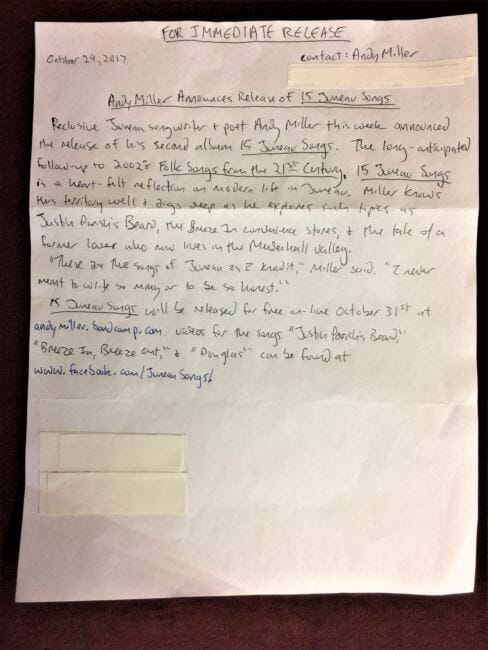 FOR IMMEDIATE RELEASE
October 24, 2017
contact: Andy Miller
Andy Miller Announces Release of 15 Juneau Songs
Reclusive Juneau songwriter + poet Andy Miller this week announced
the release of his second album 15 Juneau Songs. The long-anticipated
follow-up to 2002's Folk Songs from the 21st Century, 15 Juneau Songs
is a heart-felt reflection on modern life in Juneau. Miller knows
this territory well & digs deep as he explores such topics as
Justin Parish's Beard, the Breeze In convenience stores, & the tale of a
former lover who now lives in the Mendenhall Valley.
"These are the songs of Juneau as I know it," Miller said. "I never
meant to write so many or to be so honest."
15 Juneau Songs will be released for free on-line October 31st at
andymiller.bandcamp.com. Videos for the songs "Justin Parish's Beard,"
"Breeze In, Breeze Out," & "Douglas" can be found at
www.facebook.com/JuneauSongs/